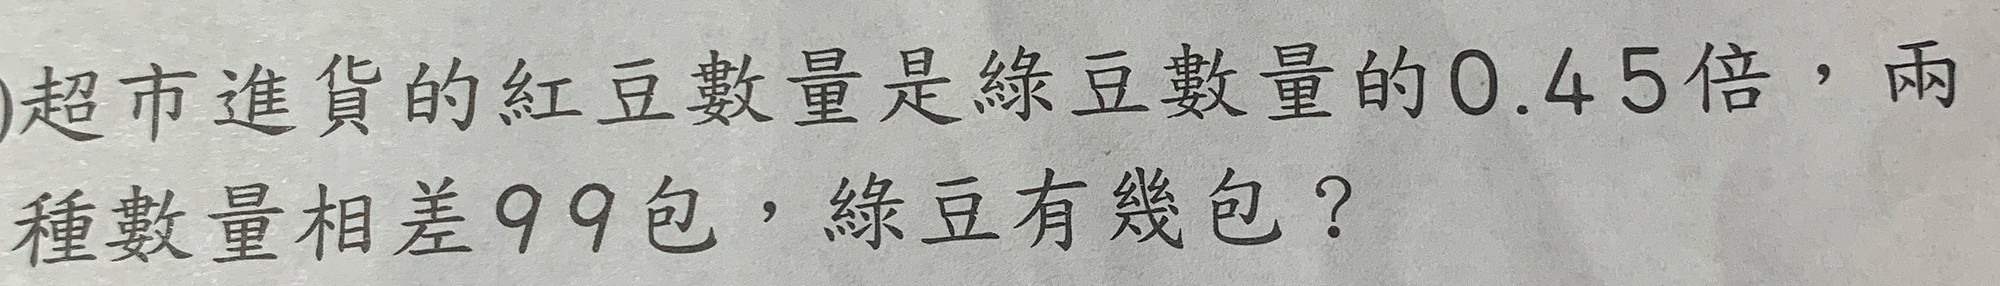 )超市進貨的紅豆數量是綠豆數量的0.45倍，兩
種數量相差99包，綠豆有幾包？